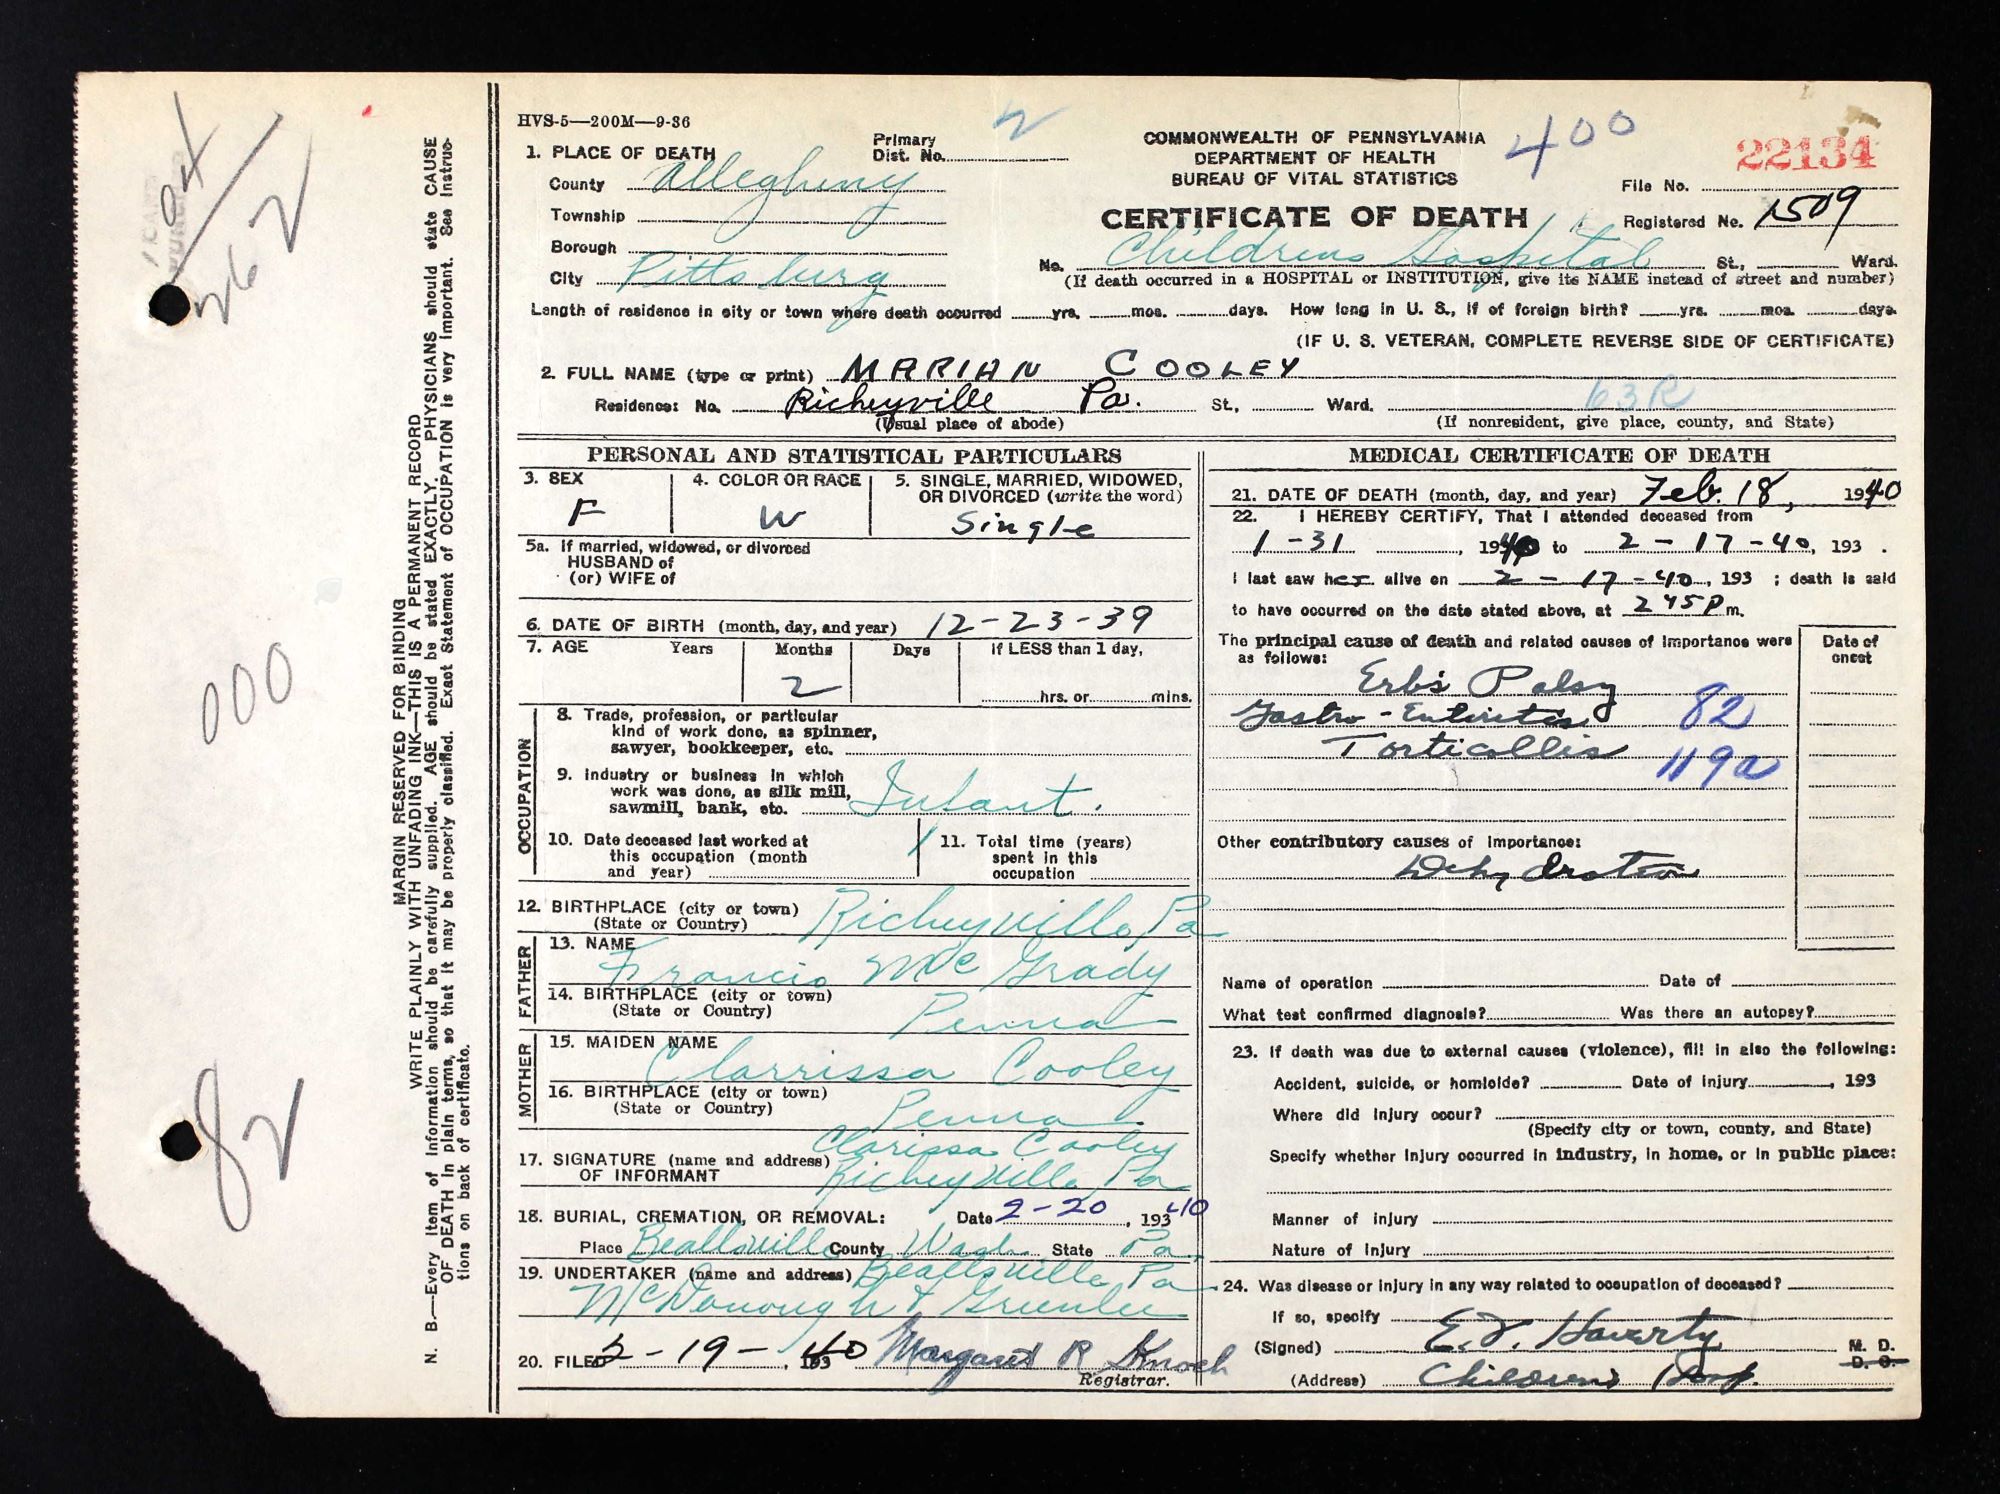 HVS-5—200M—9-36
1. PLACE OF DEATH
County Allegheny
Township
Borough
City Pittsburg
Primary Dist. No.
2
COMMONWEALTH OF PENNSYLVANIA
DEPARTMENT OF HEALTH
BUREAU OF VITAL STATISTICS
CERTIFICATE OF DEATH
400
22134
File No.
Registered No. 1509
No. Childrens Hospital St., Ward.
(If death occurred in a HOSPITAL or INSTITUTION, give its NAME instead of street and number)
Length of residence in city or town where death occurred yrs. mos. days. How long in U. S., if of foreign birth? yrs. mos. days.
(IF U. S. VETERAN, COMPLETE REVERSE SIDE OF CERTIFICATE)
2. FULL NAME (type or print) MARIAN COOLEY
Residence: No. Richeyville Pa. St., Ward. 63R
(Usual place of abode) (If nonresident, give place, county, and State)
PERSONAL AND STATISTICAL PARTICULARS
3. SEX
F
4. COLOR OR RACE
W
5. SINGLE, MARRIED, WIDOWED, OR DIVORCED (write the word)
Single
5a. If married, widowed, or divorced
HUSBAND of
(or) WIFE of
6. DATE OF BIRTH (month, day, and year) 12-23-39
7. AGE Years Months Days If LESS than 1 day,
2
hrs. or mins.
OCCUPATION
8. Trade, profession, or particular
kind of work done, as spinner,
sawyer, bookkeeper, etc.
9. Industry or business in which
work was done, as silk mill,
sawmill, bank, etc. Infant.
10. Date deceased last worked at
this occupation (month
and year)
11. Total time (years)
spent in this
occupation
12. BIRTHPLACE (city or town) Richeyville, Pa
(State or Country)
FATHER
13. NAME
Francis McGrady
14. BIRTHPLACE (city or town)
(State or Country) Penna
MOTHER
15. MAIDEN NAME
Clarrissa Cooley
16. BIRTHPLACE (city or town)
(State or Country) Penna.
17. SIGNATURE (name and address) Clarissa Cooley
OF INFORMANT Richeyville, Pa
18. BURIAL, CREMATION, OR REMOVAL: Date 2-20, 193 40
Place Beallsville County Wash State Pa.
19. UNDERTAKER (name and address) Beallsville, Pa
McDonough & Greenlee
20. FILED 2-19-, 193 40 Margaret R Knoch
Registrar.
MEDICAL CERTIFICATE OF DEATH
21. DATE OF DEATH (month, day, and year) Feb. 18, 1940
22. I HEREBY CERTIFY, That I attended deceased from
1-31, 1940 to 2-17-40, 193 .
I last saw her alive on 2-17-40, 193 ; death is said
to have occurred on the date stated above, at 2 45 P m.
The principal cause of death and related causes of importance were
as follows:
Date of onset
Erb's Palsy
Gastro-Enteritis 82
Torticollis 119a
Other contributory causes of importance:
Dehydration
Name of operation Date of
What test confirmed diagnosis? Was there an autopsy?
23. If death was due to external causes (violence), fill in also the following:
Accident, suicide, or homicide? Date of injury , 193
Where did injury occur?
(Specify city or town, county, and State)
Specify whether injury occurred in industry, in home, or in public place:
Manner of injury
Nature of injury
24. Was disease or injury in any way related to occupation of deceased?
If so, specify
(Signed) Haverty M. D.
D. O.
(Address) Childrens Hosp.
MARGIN RESERVED FOR BINDING
WRITE PLAINLY WITH UNFADING INK—THIS IS A PERMANENT RECORD
N. B.—Every item of information should be carefully supplied. AGE should be stated EXACTLY. PHYSICIANS should state CAUSE
OF DEATH in plain terms, so that it may be properly classified. Exact Statement of OCCUPATION is very important. See instruc-
tions on back of certificate.
262
000
82